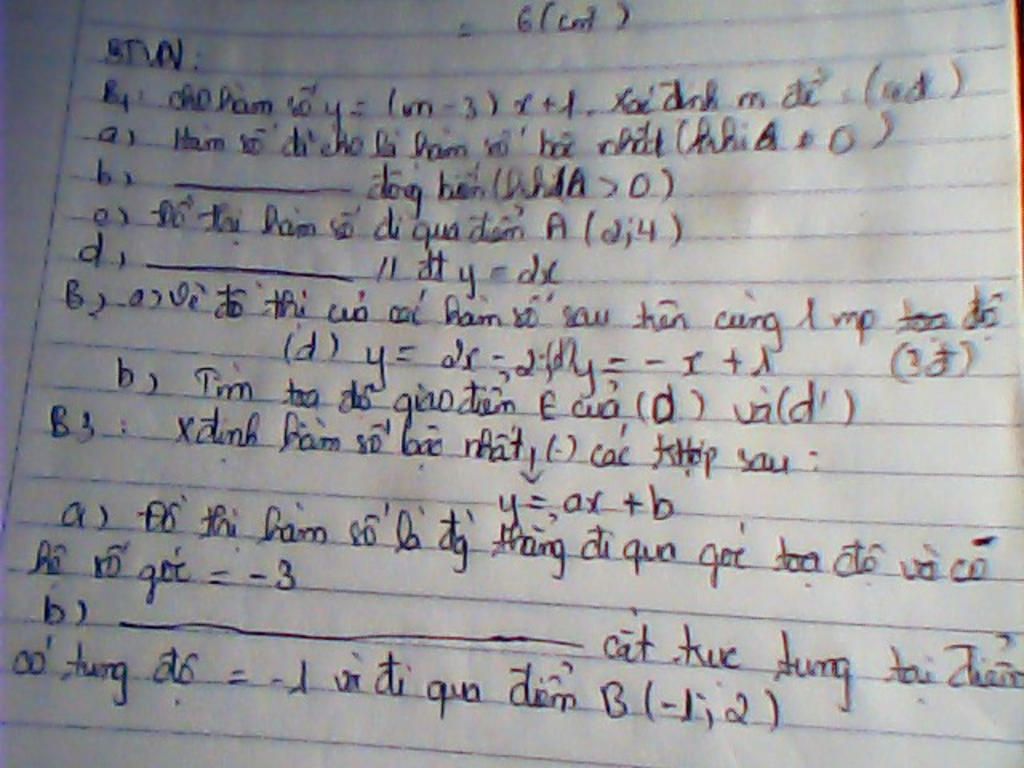 = 6 (cm²)
BTVN:
B1: cho hàm số y = (m - 3) x + 1. Xác định m để:
a, Hàm số đã cho là hàm số bậc nhất (khi A ≠ 0)
b, ________ đồng biến (khi A > 0)
c, đồ thị hàm số đi qua điểm A (2; 4)
d, ________ // đt y = 2x
B2 a, Vẽ đồ thị của các hàm số sau trên cùng 1 mp toạ độ
(d) y = 2x - 2; (d') y = -x + 1 (3đ)
b, Tìm toạ độ giao điểm E của (d) và (d')
B3: Xđịnh hàm số bậc nhất, (.) các trhợp sau:
y = ax + b
a) Đồ thị hàm số là đg thẳng đi qua gốc toạ độ và có
hệ số góc = -3
b) ________ cắt trục tung tại điểm
có tung độ = -1 và đi qua điểm B (-1; 2)